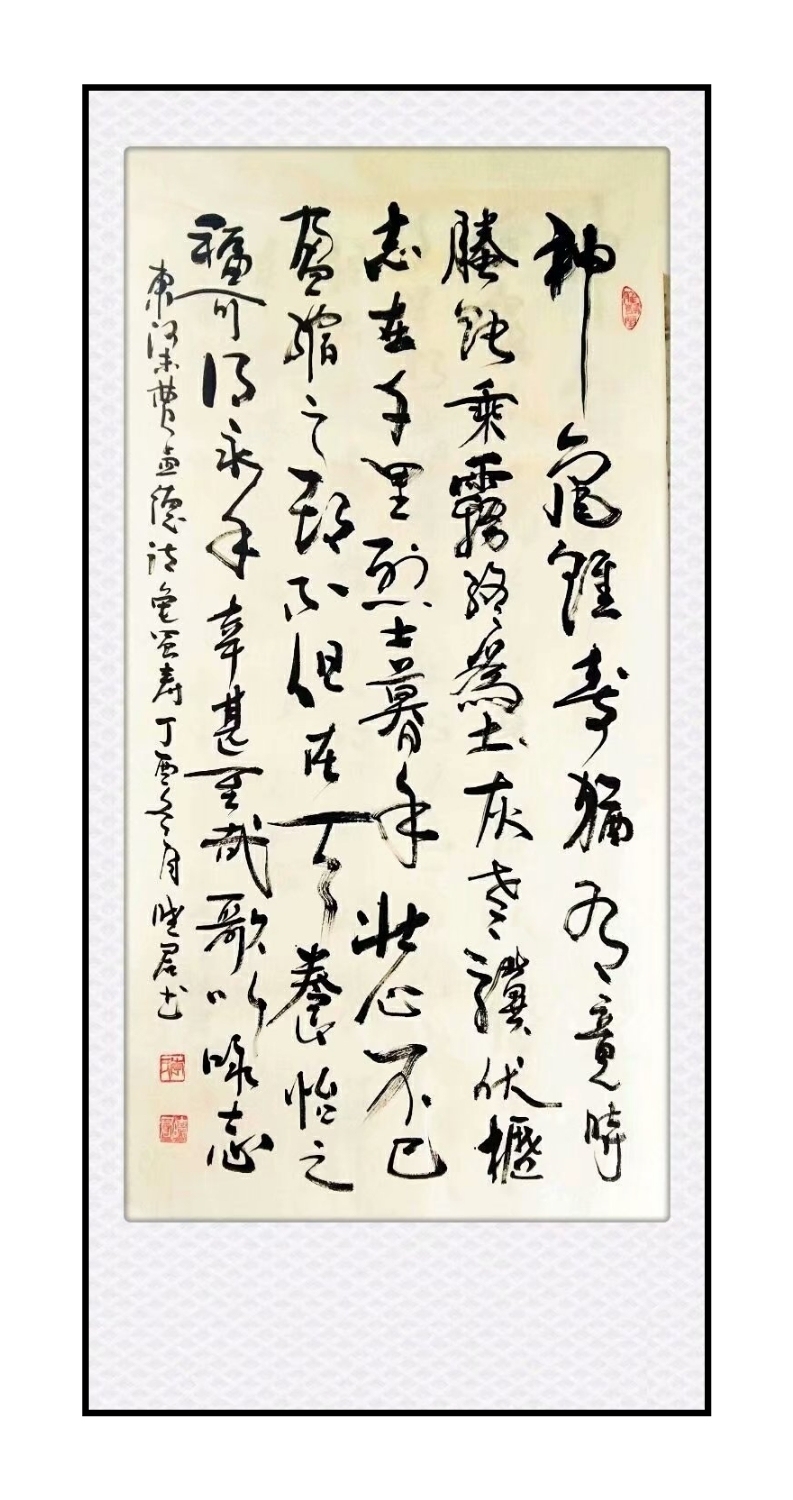 神龜雖壽猶有竟時
螣蛇乘霧終為土灰老驥伏櫪
志在千里烈士暮年壯心不已
盈縮之期不但在天養怡之
福可得永年幸甚至哉歌以咏志
東漢末曹孟德诗龟虽寿丁酉冬月君书